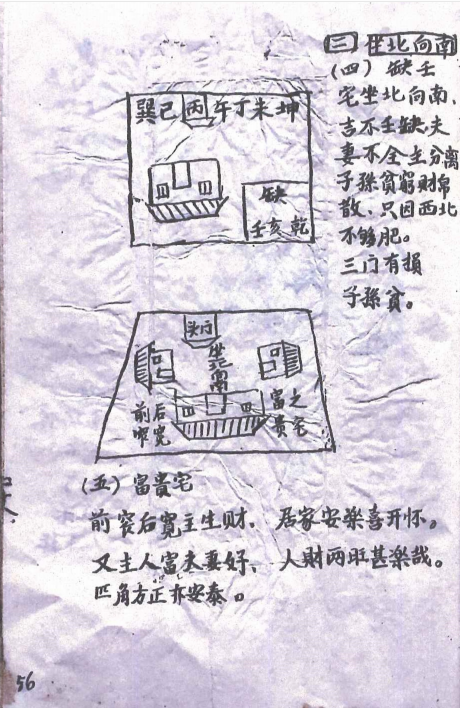 三 坐北向南
(四) 缺壬
宅坐北向南、
古不壬缺、夫
妻不全主分离
子孫貧窮财帛
散、只因西北
不够肥。
三门有損
子孫貧。
巽己丙午丁朱坤
缺
壬亥乾
头门
坐北向南
前窄后宽
富贵之宅
(五) 富貴宅
前窄后宽主生财、居家安樂喜开怀。
又主人富夫妻好、人财两旺甚樂哉。
四角方正亦安泰。
56